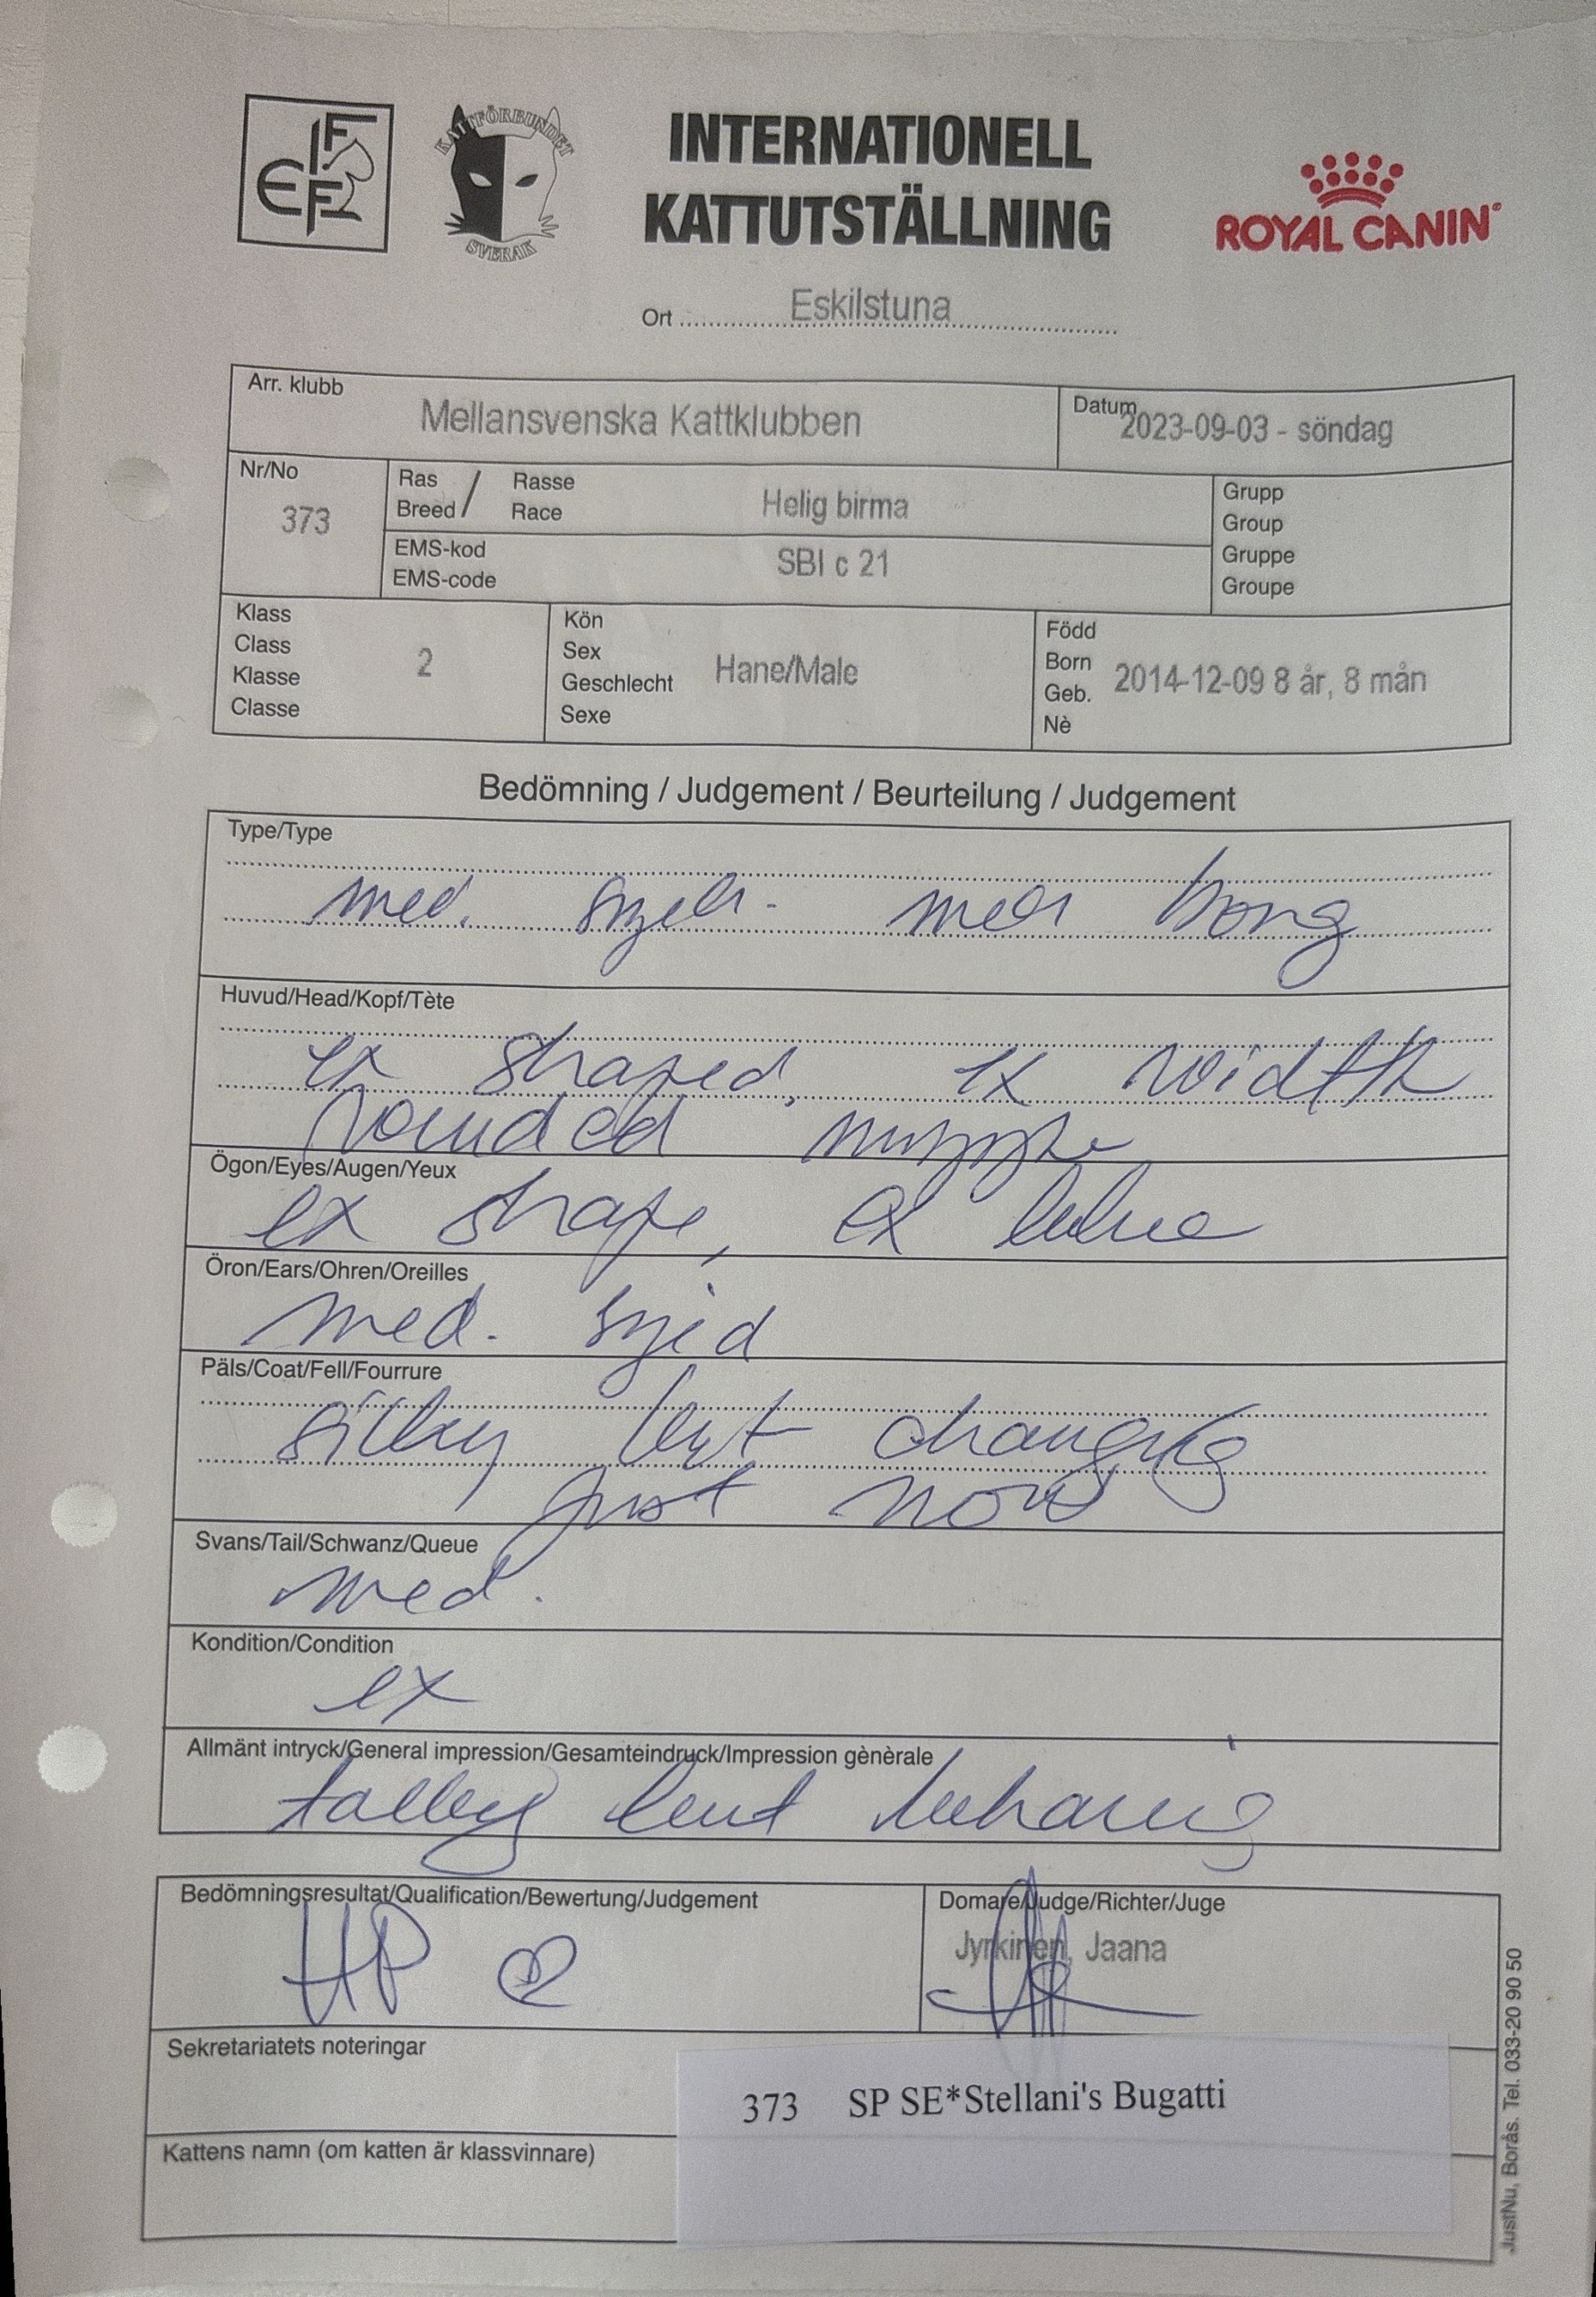 FIFE
KATTFÖRBUNDET
SVERAK
INTERNATIONELL
KATTUTSTÄLLNING
ROYAL CANIN
Ort Eskilstuna
Arr. klubb
Mellansvenska Kattklubben
Datum
2023-09-03 - söndag
Nr/No
373
Ras / Rasse
Breed Race
Helig birma
EMS-kod
EMS-code
SBI c 21
Grupp
Group
Gruppe
Groupe
Klass
Class
Klasse
Classe
2
Kön
Sex
Geschlecht
Sexe
Hane/Male
Född
Born
Geb.
Nè
2014-12-09 8 år, 8 mån
Bedömning / Judgement / Beurteilung / Judgement
Type/Type
med.
Huvud/Head/Kopf/Tète
ex shaped, ex width
rounded
Ögon/Eyes/Augen/Yeux
ex shape, ex blue
Öron/Ears/Ohren/Oreilles
med.
Päls/Coat/Fell/Fourrure
silky but changing
just now
Svans/Tail/Schwanz/Queue
med.
Kondition/Condition
ex
Allmänt intryck/General impression/Gesamteindruck/Impression gènèrale
Bedömningsresultat/Qualification/Bewertung/Judgement
HP
Domare/Judge/Richter/Juge
Jyrkinen, Jaana
Sekretariatets noteringar
373 SP SE*Stellani's Bugatti
Kattens namn (om katten är klassvinnare)
JustNu, Borås. Tel. 033-20 90 50